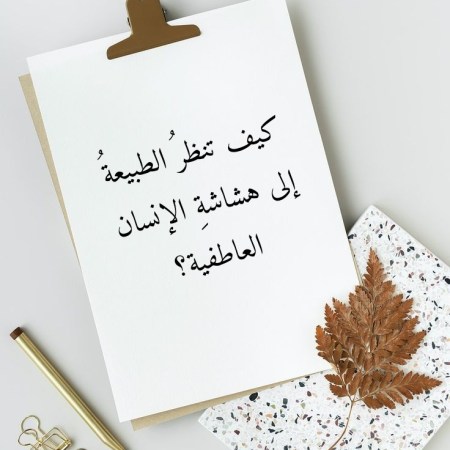 كيف تنظرُ الطبيعةُ
إلى هشاشةِ الإنسان
العاطفية؟